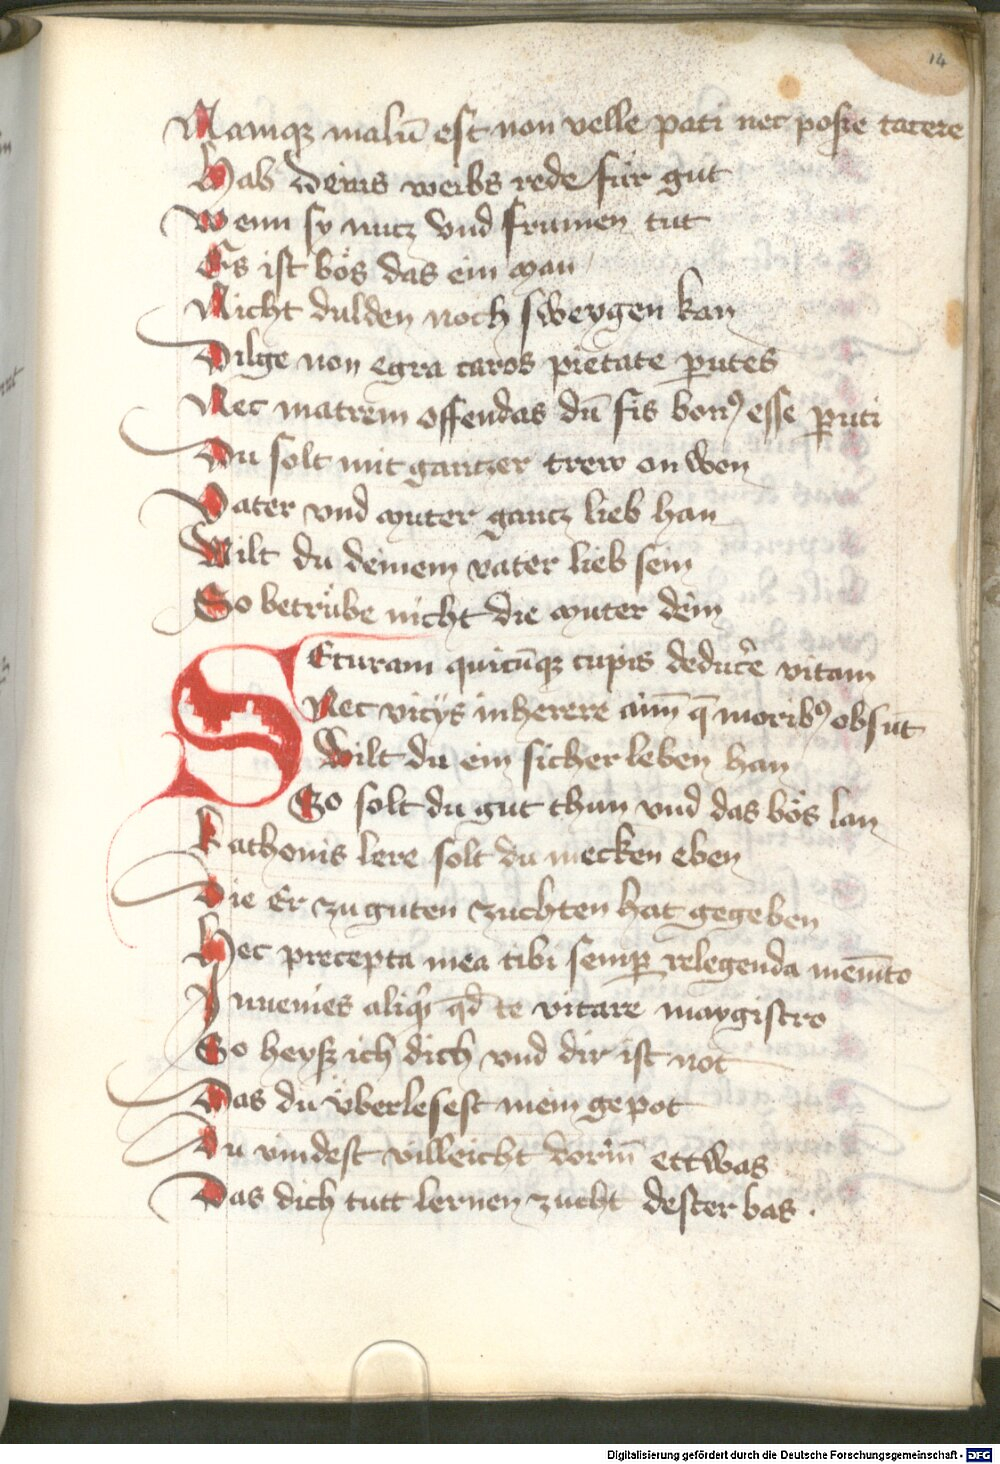 14
Namqꝫ malū est non velle pati nec posse tacere
Hab deins weibs rede für gut
Wenn sy nutz vnd frumen tut
Es ist bös das ein man
Nicht dulden noch sweygen kan
Dilge non egra caros pietate ꝑutes
Nec matrem offendas dū fis bonꝰ esse ꝑuti
Du solt mit gantzer trew on won
Vater vnd muter gantz lieb han
Wilt du deinem vater lieb sein
So betrübe nicht die muter dein
SEcuram quicūqꝫ cupis deduc̄e vitam
Nec vicijs inherere aīm q̄ moribꝰ obsūt
Wilt du ein sicher leben han
So solt du gut thun vnd das bös lan
Kathonis lere solt du mecken eben
Die Er zu guten zuchten hat gegeben
Hec precepta mea tibi semꝑ relegenda memēto
Inuenies aliqͥ qd̄ te vitare maygistro
So heysz ich dich vnd dir ist not
Das du überlesest mein gepot
Du vindest villeicht dorīn ettwas
Das dich tutt lernen zucht dester bas .
Digitalisierung gefördert durch die Deutsche Forschungsgemeinschaft - DFG